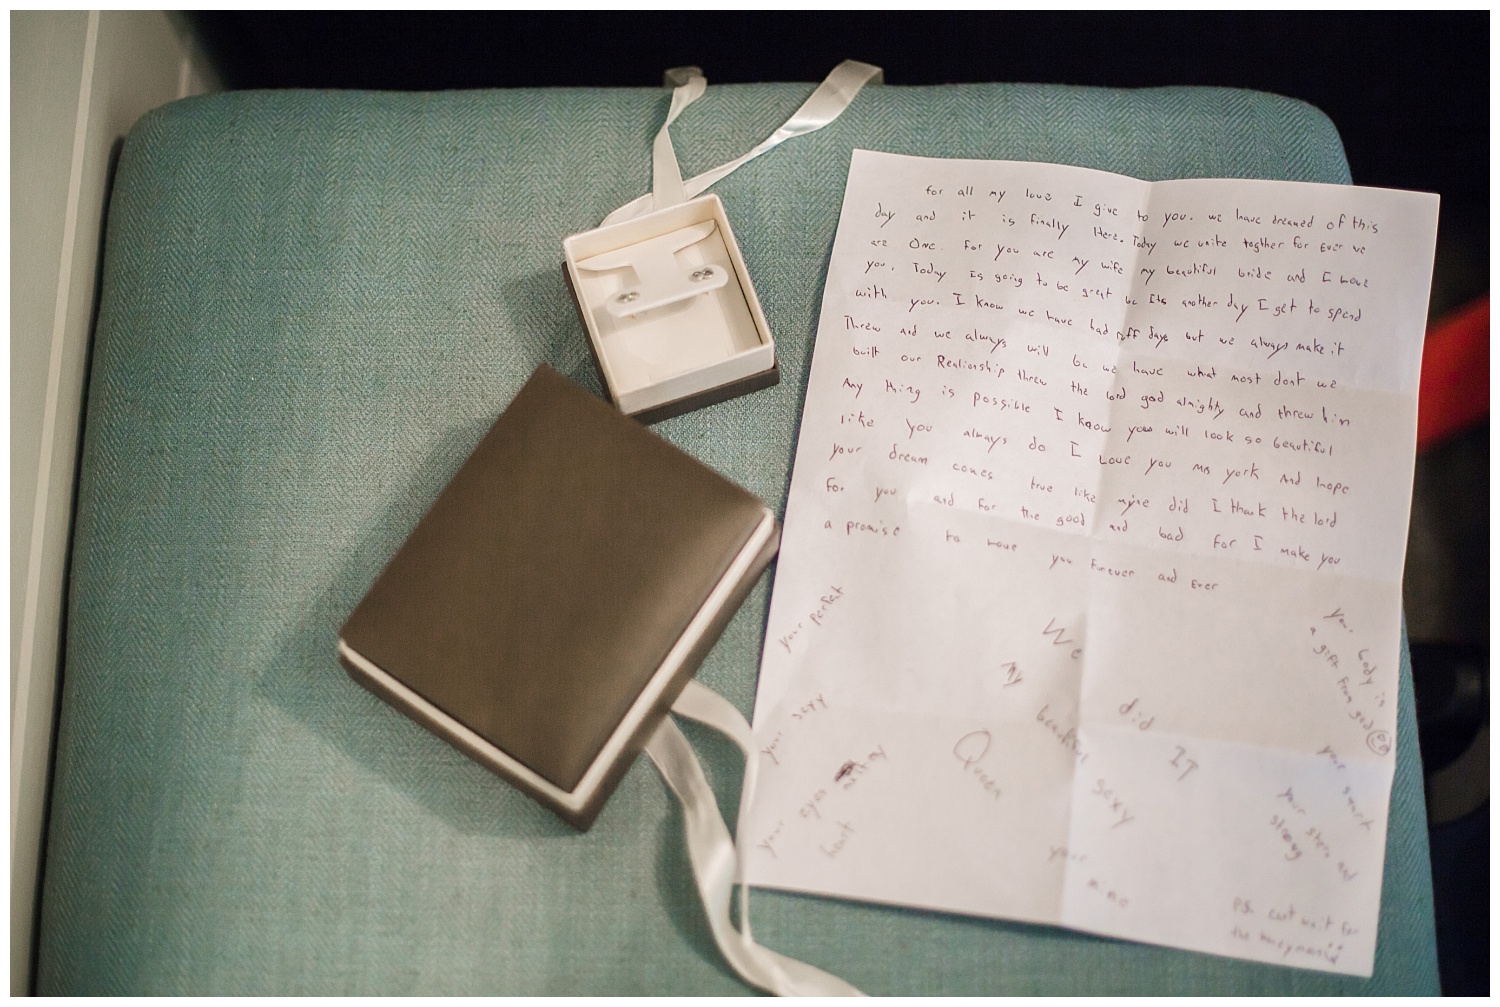 for all my love I give to you. we have dreamed of this
day and it is finally Here. Today we unite togther for Ever we
are One. For you are my wife my beautiful bride and I Love
you. Today Is going to be great bc Its another day I get to spend
with you. I know we have had ruff days but we always make it
Threw and we always will bc we have what most dont we
built our Realionship threw the lord god almighty and threw him
Any thing is possible I know you will look so beautiful
like you always do I Love you Mrs york And hope
your dream comes true like myne did I thank the lord
For you and for the good and bad For I make you
a promise to Love you Forever and Ever
your perfect
We
did
IT
My
beautiful
sexy
Queen
your sexy
your eyes
heart
your body is
a gift from god
your smart
your stern and
strong
your
mine
PS. cant wait for
the honeymoon